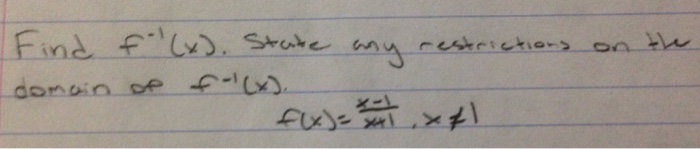 Find f⁻¹(x). State any restrictions on the
domain of f⁻¹(x).
f(x) = (x-1)/(x+1), x ≠ 1